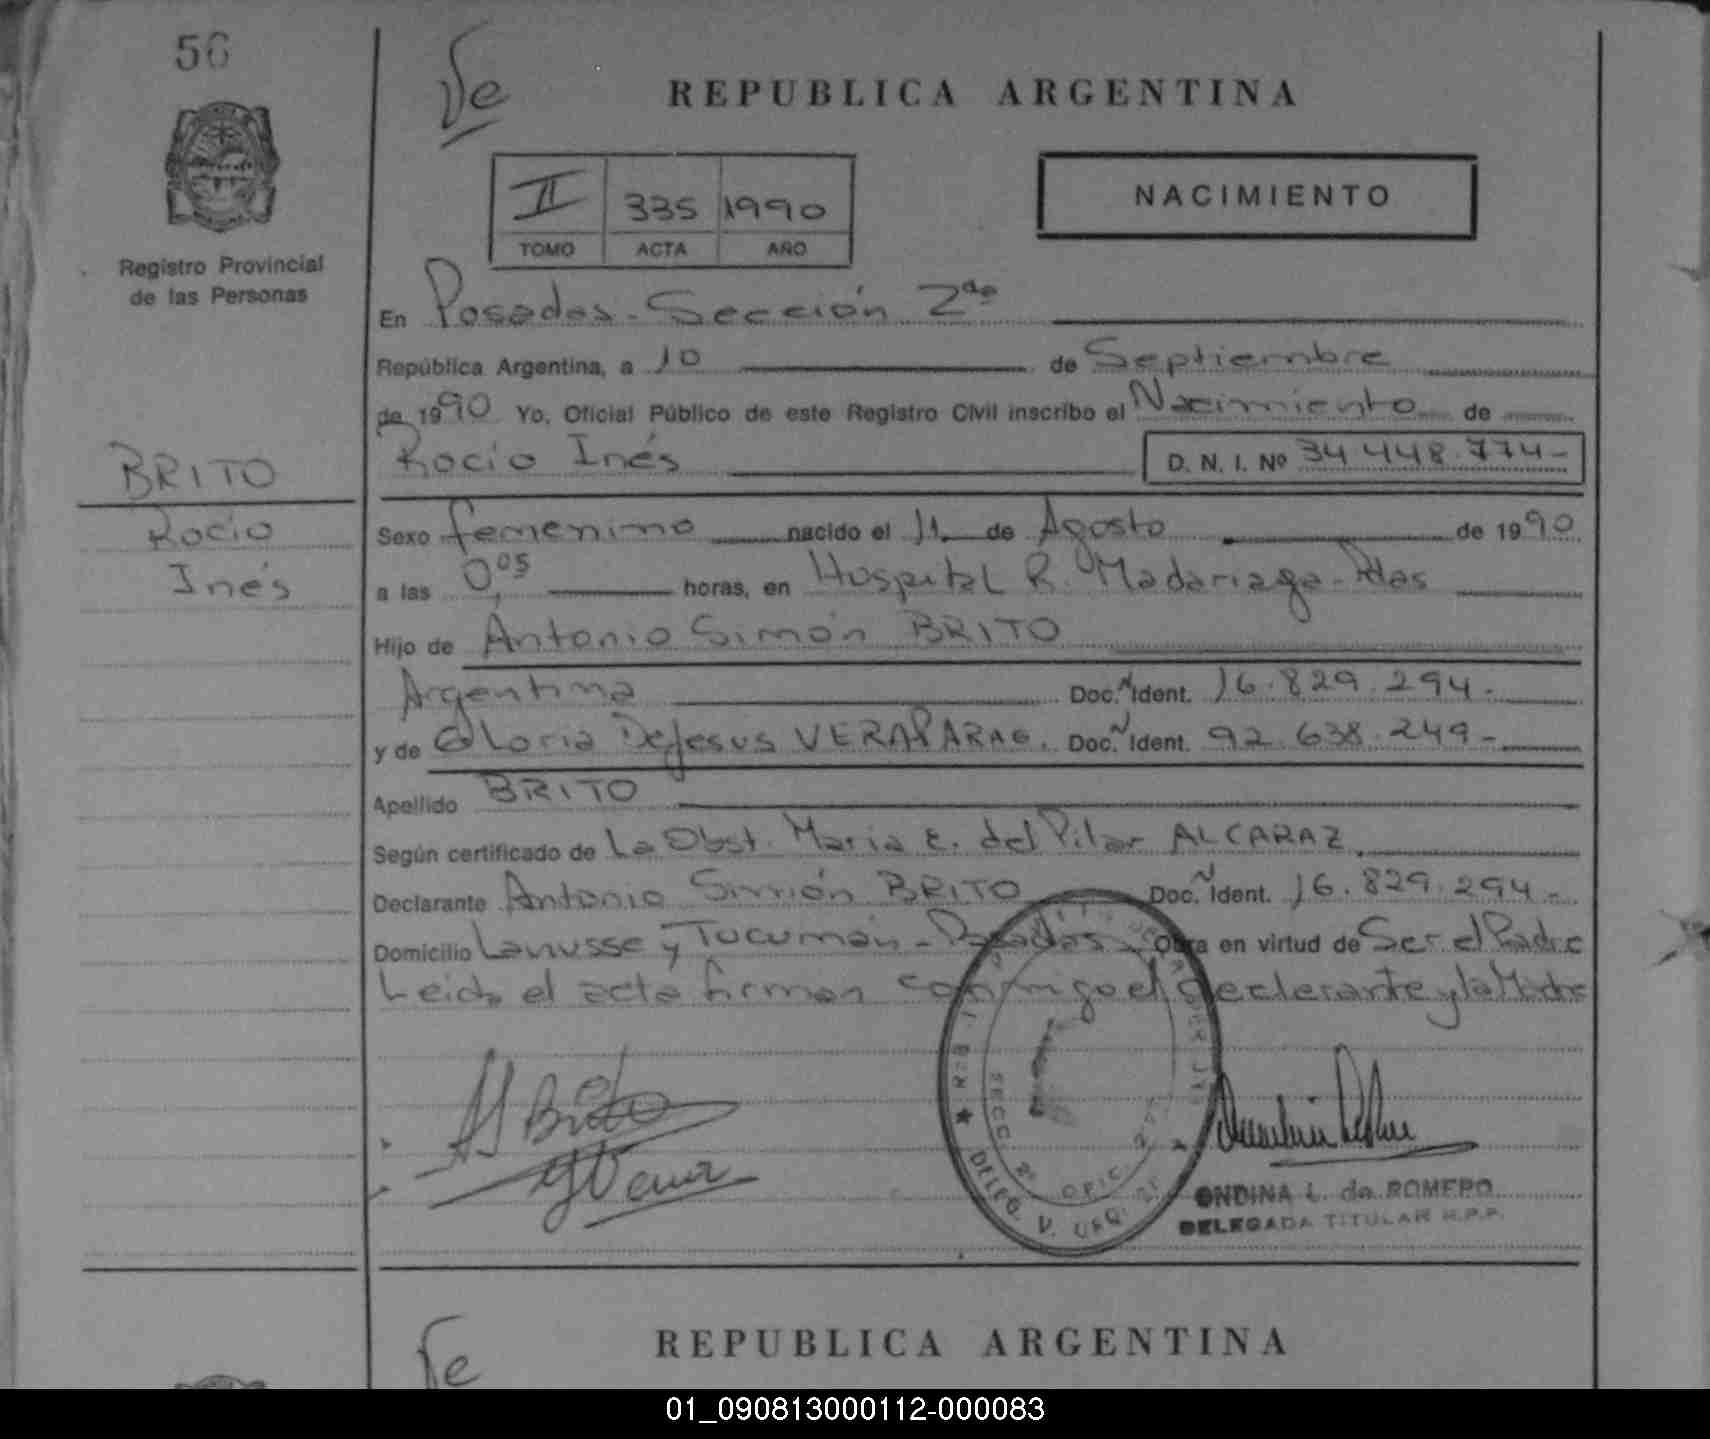 56
Ve
REPUBLICA ARGENTINA
II 335 1990
TOMO ACTA AÑO
NACIMIENTO
Registro Provincial
de las Personas
En Posadas - Sección 2da
República Argentina, a 10 de Septiembre
de 1990 Yo, Oficial Público de este Registro Civil inscribo el Nacimiento de
Rocío Inés D. N. I. Nº 34.448.774-
BRITO
Rocío
Inés
Sexo femenino nacido el 11 de Agosto de 1990
a las 0,05 horas, en Hospital R. Madariaga - Pdas
Hijo de Antonio Simón BRITO
Argentina Doc. N Ident. 16.829.294-
y de Gloria DeJesus VERA PARAG. Doc. N Ident. 92.638.249-
Apellido BRITO
Según certificado de La Obst. Maria E. del Pilar ALCARAZ
Declarante Antonio Simón BRITO Doc. N Ident. 16.829.294-
Domicilio Lanusse y Tucumán - Posadas Obra en virtud de Ser el Padre
Leida el acta firman conmigo el declarante y la Madre
A S Brito
G Vera
SECC. 2ª OFIC.
ONDINA L. de ROMERO
DELEGADA TITULAR R.P.P.
REPUBLICA ARGENTINA
Ve
01_090813000112-000083